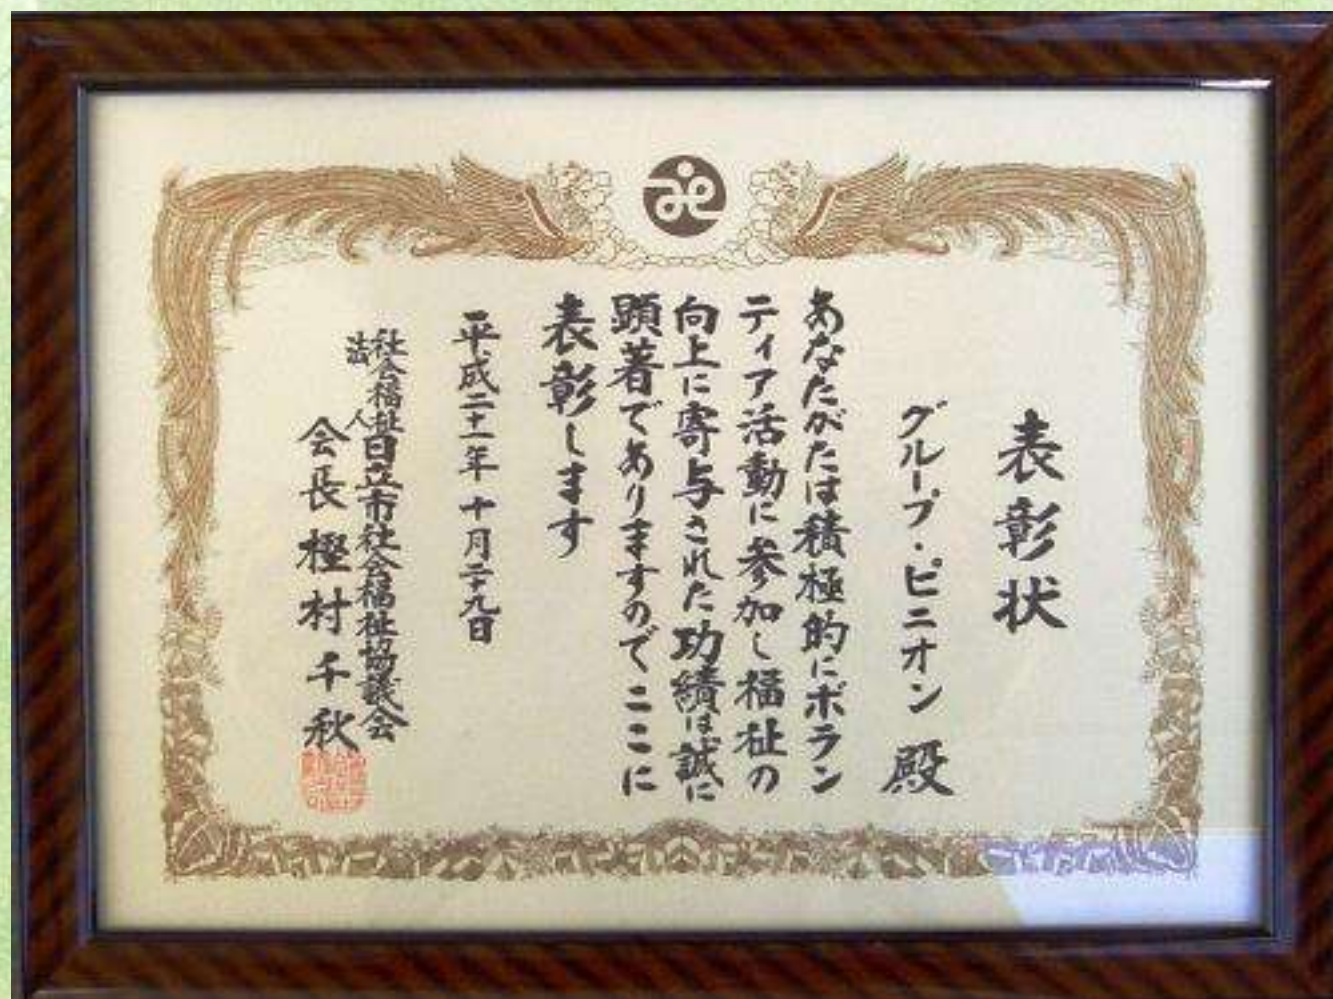 表彰状
グループ・ピニオン 殿
あなたがたは積極的にボラン
ティア活動に参加し福祉の
向上に寄与された功績は誠に
顕著でありますのでここに
表彰します
平成二十一年十月二十九日
社会福祉法人日立市社会福祉協議会
会長 樫村千秋